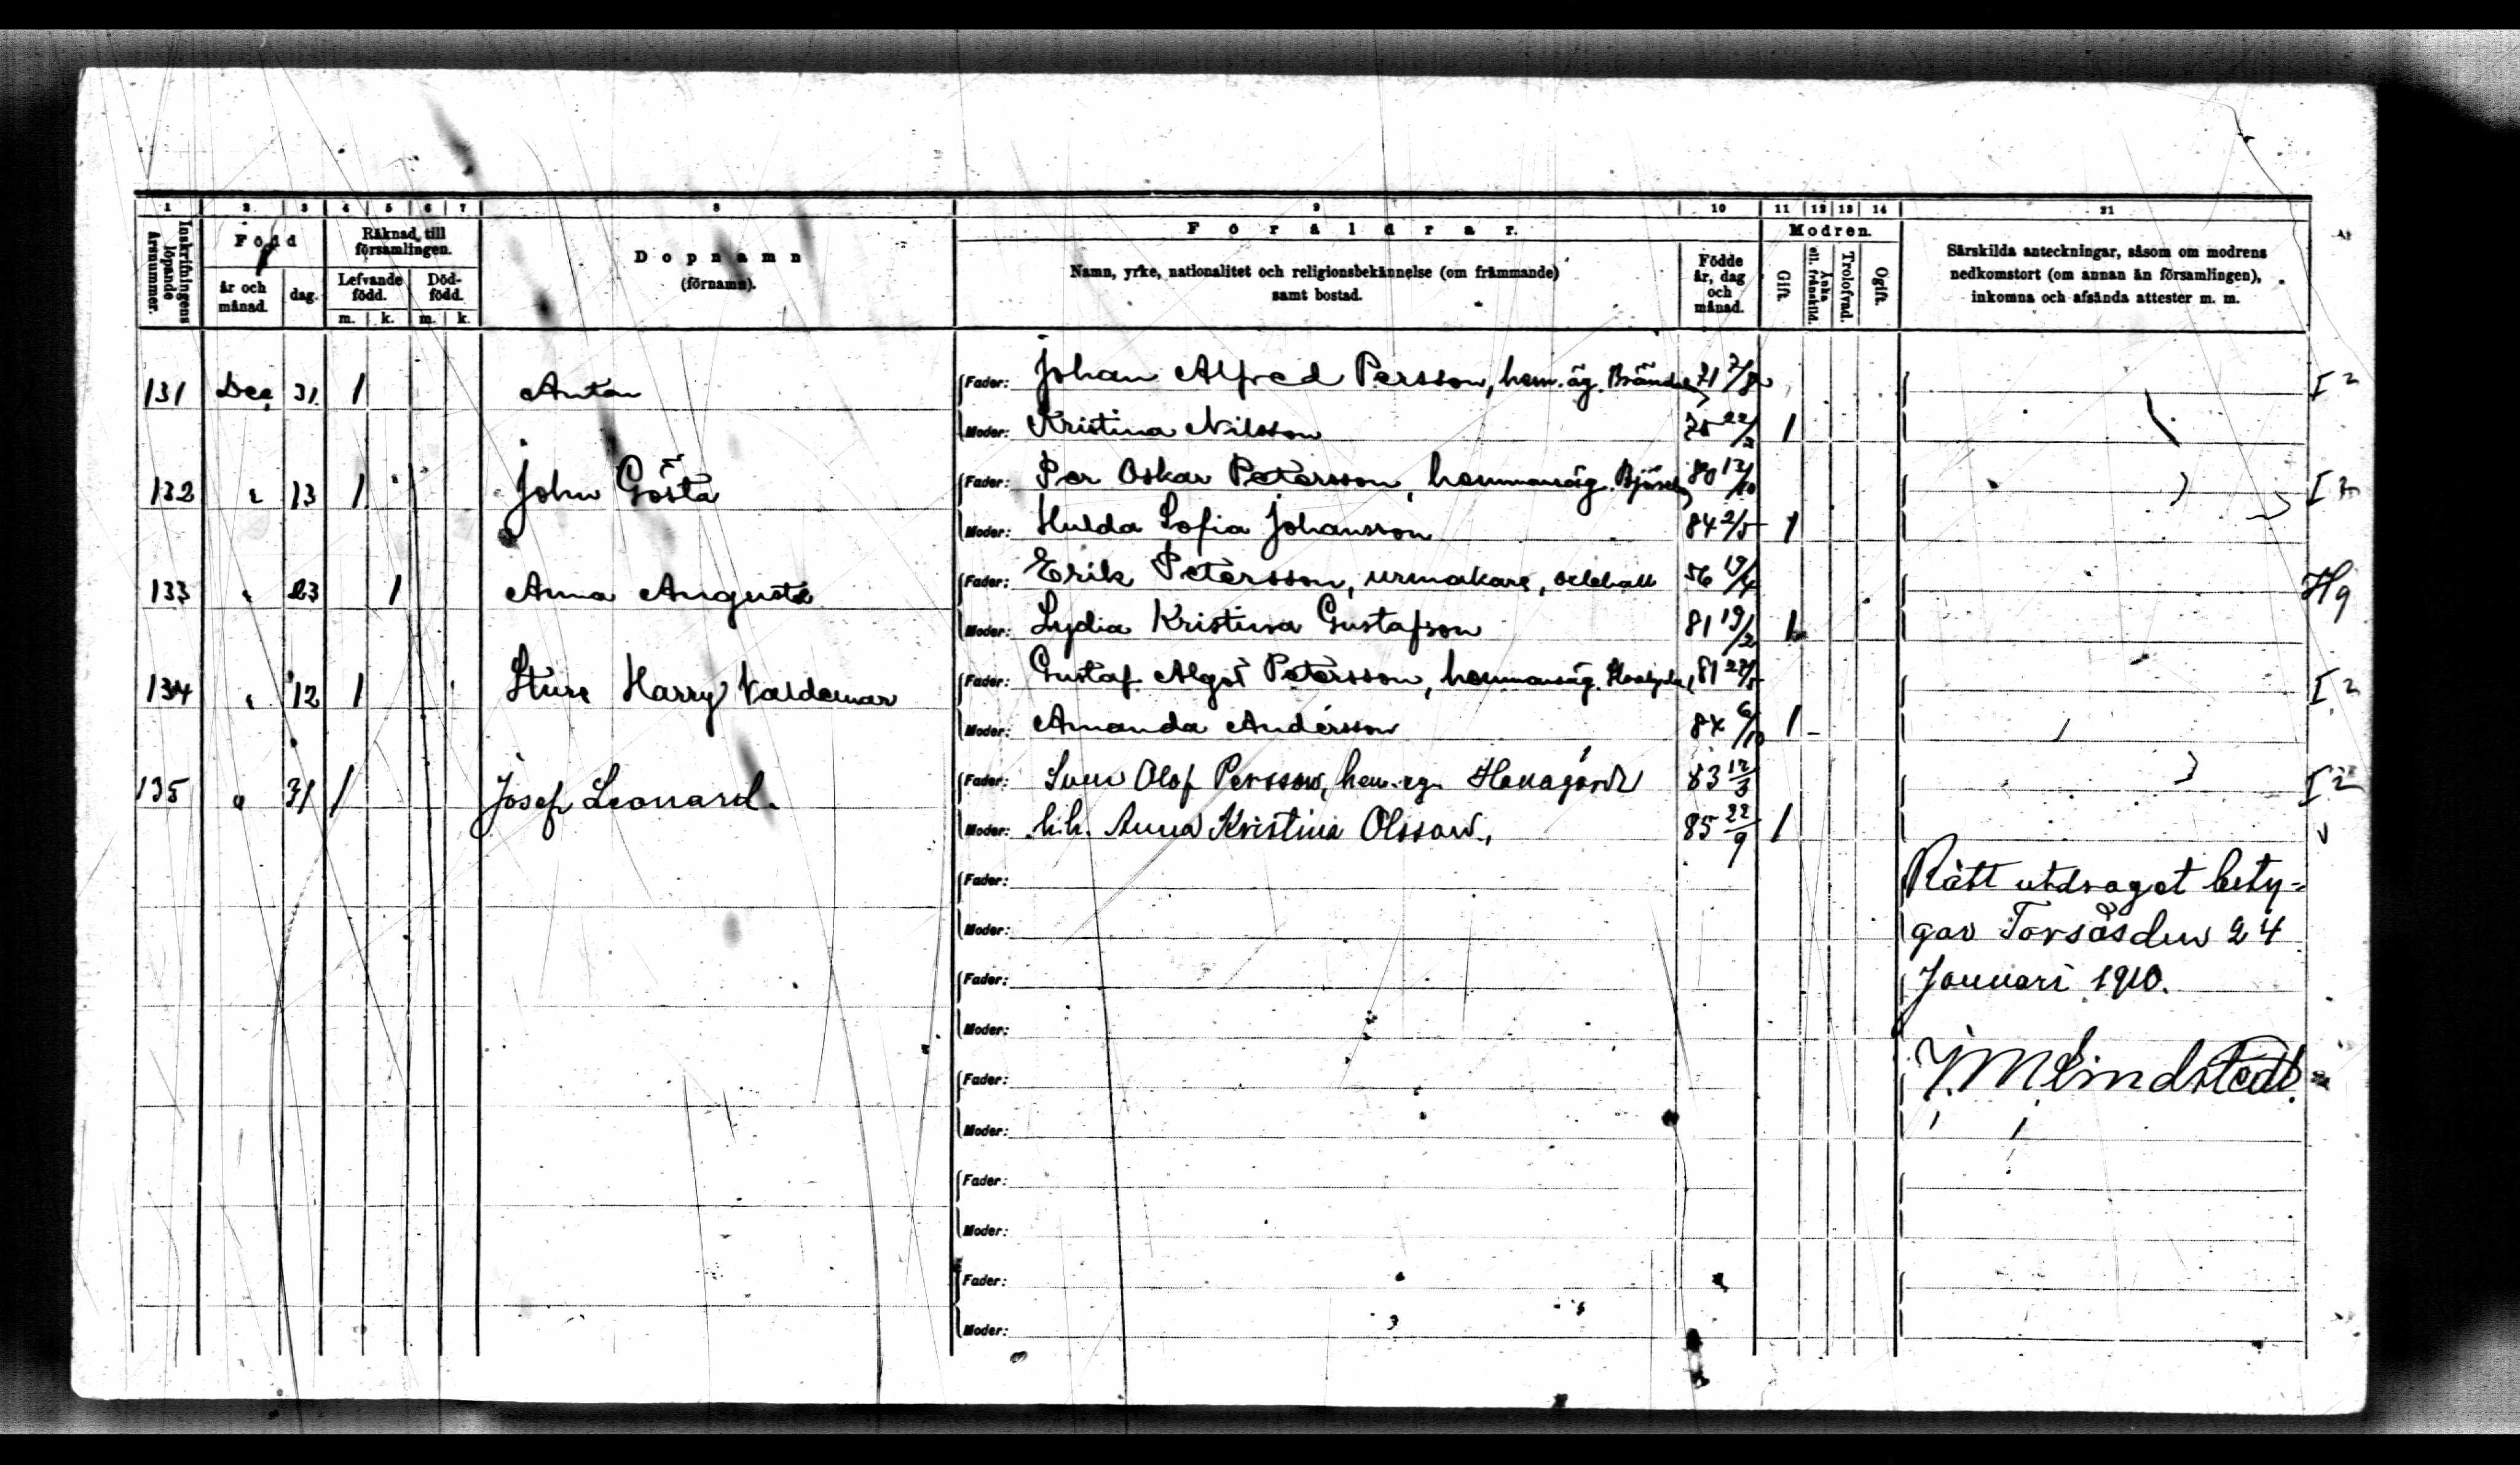 1 2 3 4 5 6 7 8 9 10 11 12 13 14 21
Inskrifningens löpande årsnummer.
Född
år och månad.
dag.
Räknad till församlingen.
Lefvande född.
Död-född.
m. k. m. k.
Dopnamn
(förnamn).
Föräldrar.
Namn, yrke, nationalitet och religionsbekännelse (om främmande)
samt bostad.
Födde år, dag och månad.
Modren.
Gift.
Enka ell. frånskild.
Trolofvad.
Ogift.
Särskilda anteckningar, såsom om modrens
nedkomstort (om annan än församlingen),
inkomna och afsända attester m. m.
131 Dec. 31. 1 Anton Fader: Johan Alfred Persson, hem.äg. 71 7/8 I 2
Moder: Kristina Nilsson 75 1
132 " 13 1 John Gösta Fader: Per Oskar Petersson, hemmansäg. 80 12/10 I 2
Moder: Hulda Sofia Johansson 84 2/5 1
133 " 23 1 Anna Augusta Fader: Erik Petersson, urmakare, 56 19/4 Hg
Moder: Lydia Kristina Gustafson 81 19/2 1
134 " 12 1 Sture Harry Valdemar Fader: Gustaf Algot Petersson, hemmansäg. 81 I 2
Moder: Amanda Andersson 84 6/10 1
135 " 31 1 Josef Leonard. Fader: Sven Olof Persson, hem.eg. 83 12/3 I 2
Moder: h.h. Anna Kristina Olsson, 85 22/9 1
Fader: Rätt utdraget bety-
Moder: gar Torsås den 24
Fader: Januari 1910.
Moder:
Fader: J.M Lindstedt.
Moder:
Fader:
Moder:
Fader:
Moder: